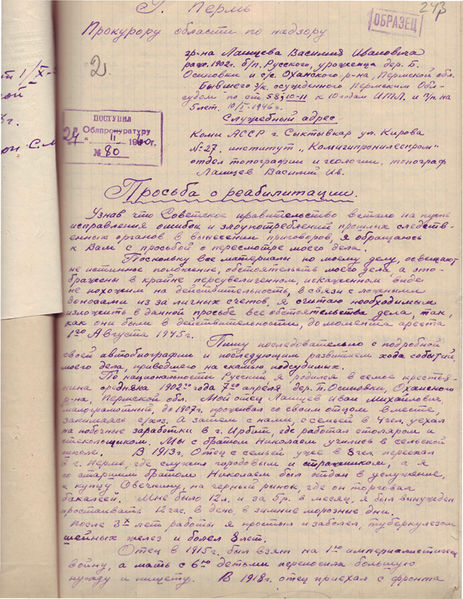 243
ОБРАЗЕЦ
Г. Пермь
Прокурору области по надзору
гр-на Лапцева Василия Ивановича
рожд. 1902г. б/п. Русского, уроженца дер. Б.
Осиновки и с/с. Оханского р-на, Пермской обл.
бывшего з/к. осужденного Пермским Обл-
судом по ст. 58§10-11 к 10 годам И.Т.Л. и п/п на
5 лет.
2.
Служебный адрес
Коми АССР г. Сыктывкар ул. Кирова
№27, институт
отдел топографии и геологии, топограф
Лапцев Василий Ив.
ПОСТУПИЛА
Облпрокуратуру
№ 80
Просьба о реабилитации.
Узнав что Советское правительство встало на путь
исправления ошибок и злоупотреблений прошлых следств-
енных органов в вынесении приговоров, я обращаюсь
к Вам с просьбой о пересмотре моего дела.
Поскольку все материалы по моему делу, освещают
не истинное положение, обстоятельств моего дела, а ото-
бражены в крайне преувеличенном, искаженном виде
не похожими на действительность, в связи с ложными
доносами из за личных счетов, я считаю необходимым
изложить в данной просьбе все обстоятельства дела, так,
как они были в действительности, до момента ареста
1го Августа 1945г.
Пишу последовательно с подробной
своей автобиографии и последующим развитием хода событий,
моего дела, приведшего на скамью подсудимых.
По национальности Русский, я родился в семье кресть-
янина средняка 1902го года 7го апреля дер. Б. Осиновки, Оханского
р-на, Пермской обл. Мой отец Лапцев Иван Михайлович
малограмотный, до 1907г. проживал со своим отцом вместе,
занимаясь с/хоз. А затем с нами, с семьей в 4 чел, уехал
на побочные заработки в г. Ирбит, где работал столяром и
стекольщиком. Мы с братом Николаем учились в сельской
школе. В 1913г. Отец с семьей уже в 8 чел переехал
в г. Пермь, где служил городовым и стражником, а я
со старшим братом Николаем был отдан в услужение,
к купцу Овечкину, на черный рынок, где он торговал
бакалеей. Мне было 12л. и за 5р. в месяц, я был вынужден
простаивать 12 час. в день, в зимние морозные дни.
После 3х лет работы я простыл и заболел, туберкулезом
шейных желез и болел 8 лет.
Отец в 1915г. был взят на 1ю империалистическую
войну, а мать с 6ю детьми переносила большую
нужду и нищету. В 1918г. отец приехал с фронта